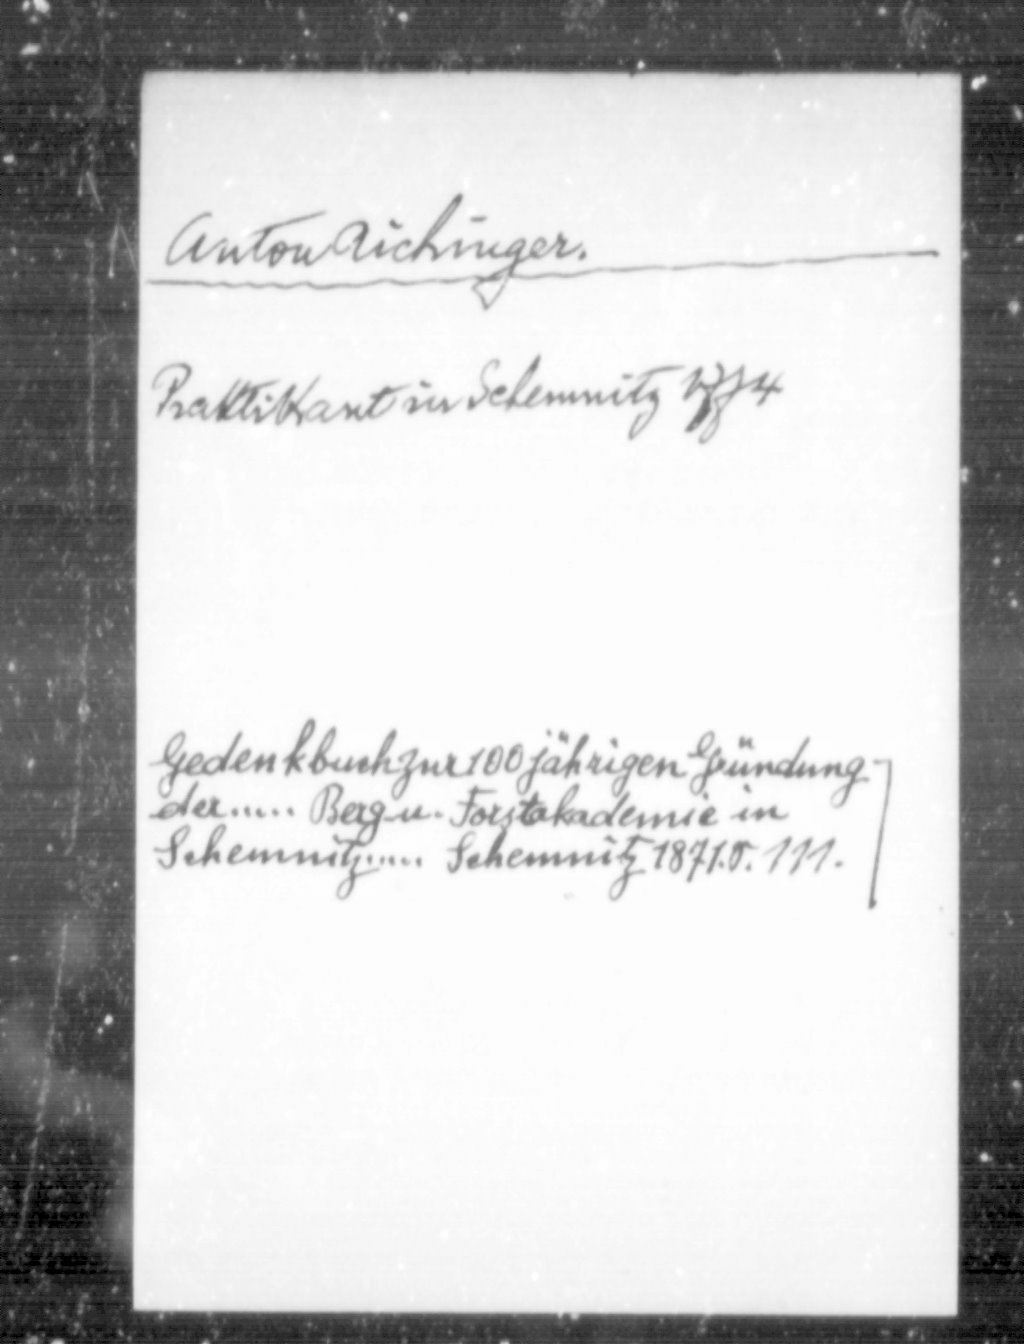 Anton Aichinger.
Praktikant in Schemnitz
Gedenkbuch zur 100 jährigen Gründung
der ..... Berg u. Forstakademie in
Schemnitz ..... Schemnitz 1871. S. 111.